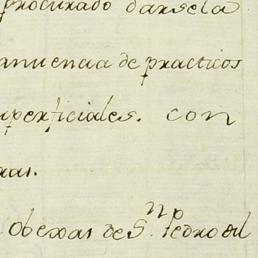 procurado darsela
anuencia de practicos
uperficiales. con
as.
obexas de S.n Pedro el